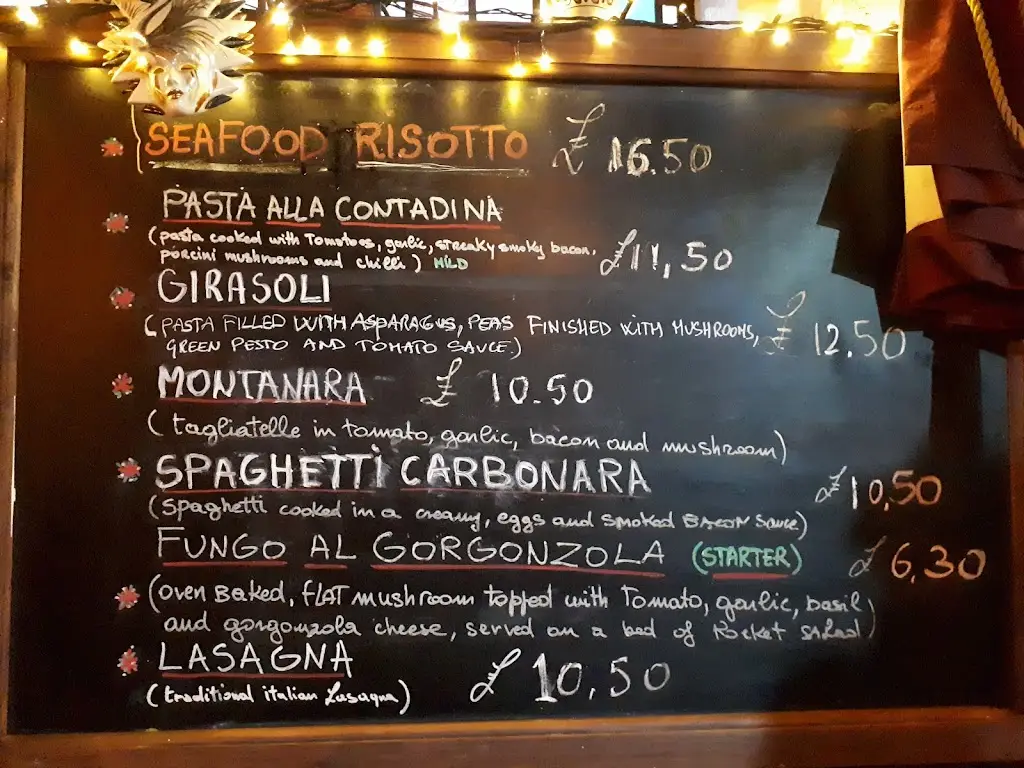 SEAFOOD RISOTTO £ 16.50
PASTA ALLA CONTADINA
(pasta cooked with Tomatoes, garlic, streaky smoky bacon,
porcini mushrooms and chilli) MILD £11,50
GIRASOLI
(PASTA FILLED WITH ASPARAGUS, PEAS FINISHED WITH MUSHROOMS, £ 12.50
GREEN PESTO AND TOMATO SAUCE.)
MONTANARA £ 10.50
(tagliatelle in tomato, garlic, bacon and mushroom)
SPAGHETTI CARBONARA £10,50
(Spaghetti cooked in a creamy, eggs and smoked BACON Sauce)
FUNGO AL GORGONZOLA (STARTER) £ 6,30
(oven Baked, FLAT mushroom topped with Tomato, garlic, basil
and gorgonzola cheese, served on a bed of Rocket SALAD)
LASAGNA £10,50
(traditional italian Lasagna)